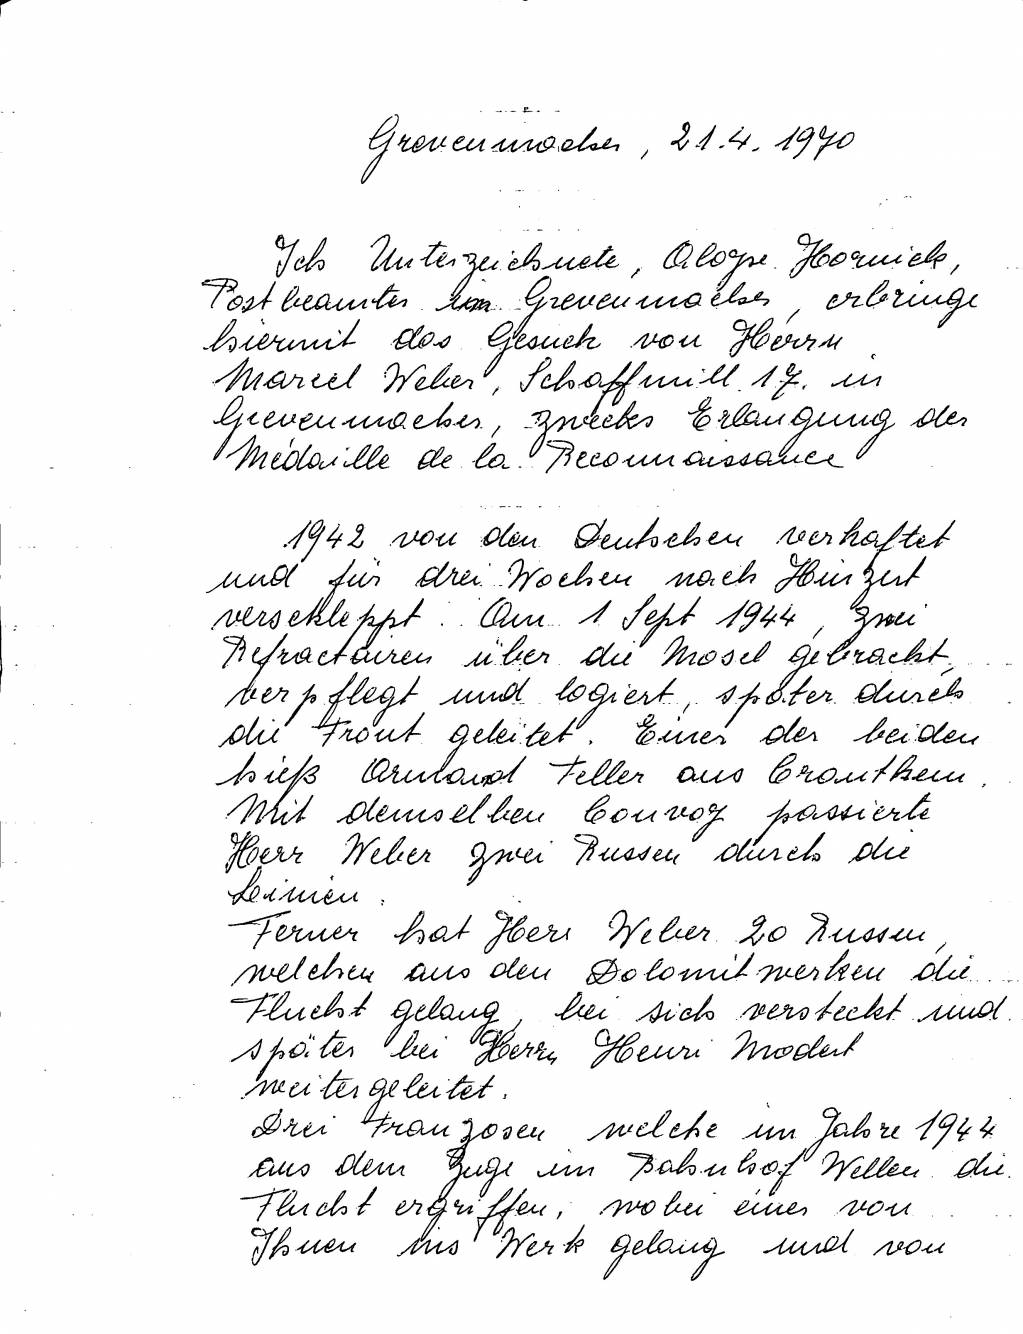 Grevenmacher, 21.4.1970
Ich Unterzeichnete, Aloyse Hornick,
Postbeamter in Grevenmacher, erbringe
hiermit das Gesuch von Herrn
Marcel Weber, Schaffmill 17. in
Grevenmacher, zwecks Erlangung der
Médaille de la Reconnaissance
1942 von den Deutschen verhaftet
und für drei Wochen nach Hinzert
verschleppt. Am 1 Sept 1944, zwei
Refractairen über die Mosel gebracht,
verpflegt und logiert, später durch
die Front geleitet. Einer der beiden
hieß Armand Feller aus Crauthem.
Mit demselben Convoy passierte
Herr Weber zwei Russen durch die
Leinien.
Ferner hat Herr Weber 20 Russen,
welchen aus den Dolomitwerken die
Flucht gelang, bei sich versteckt und
später bei Herrn Henri Modert
weitergeleitet.
Drei Franzosen welche im Jahre 1944
aus dem Zuge im Bahnhof Wellen die
Flucht ergriffen, wobei einer von
Ihnen ins Werk gelang und von